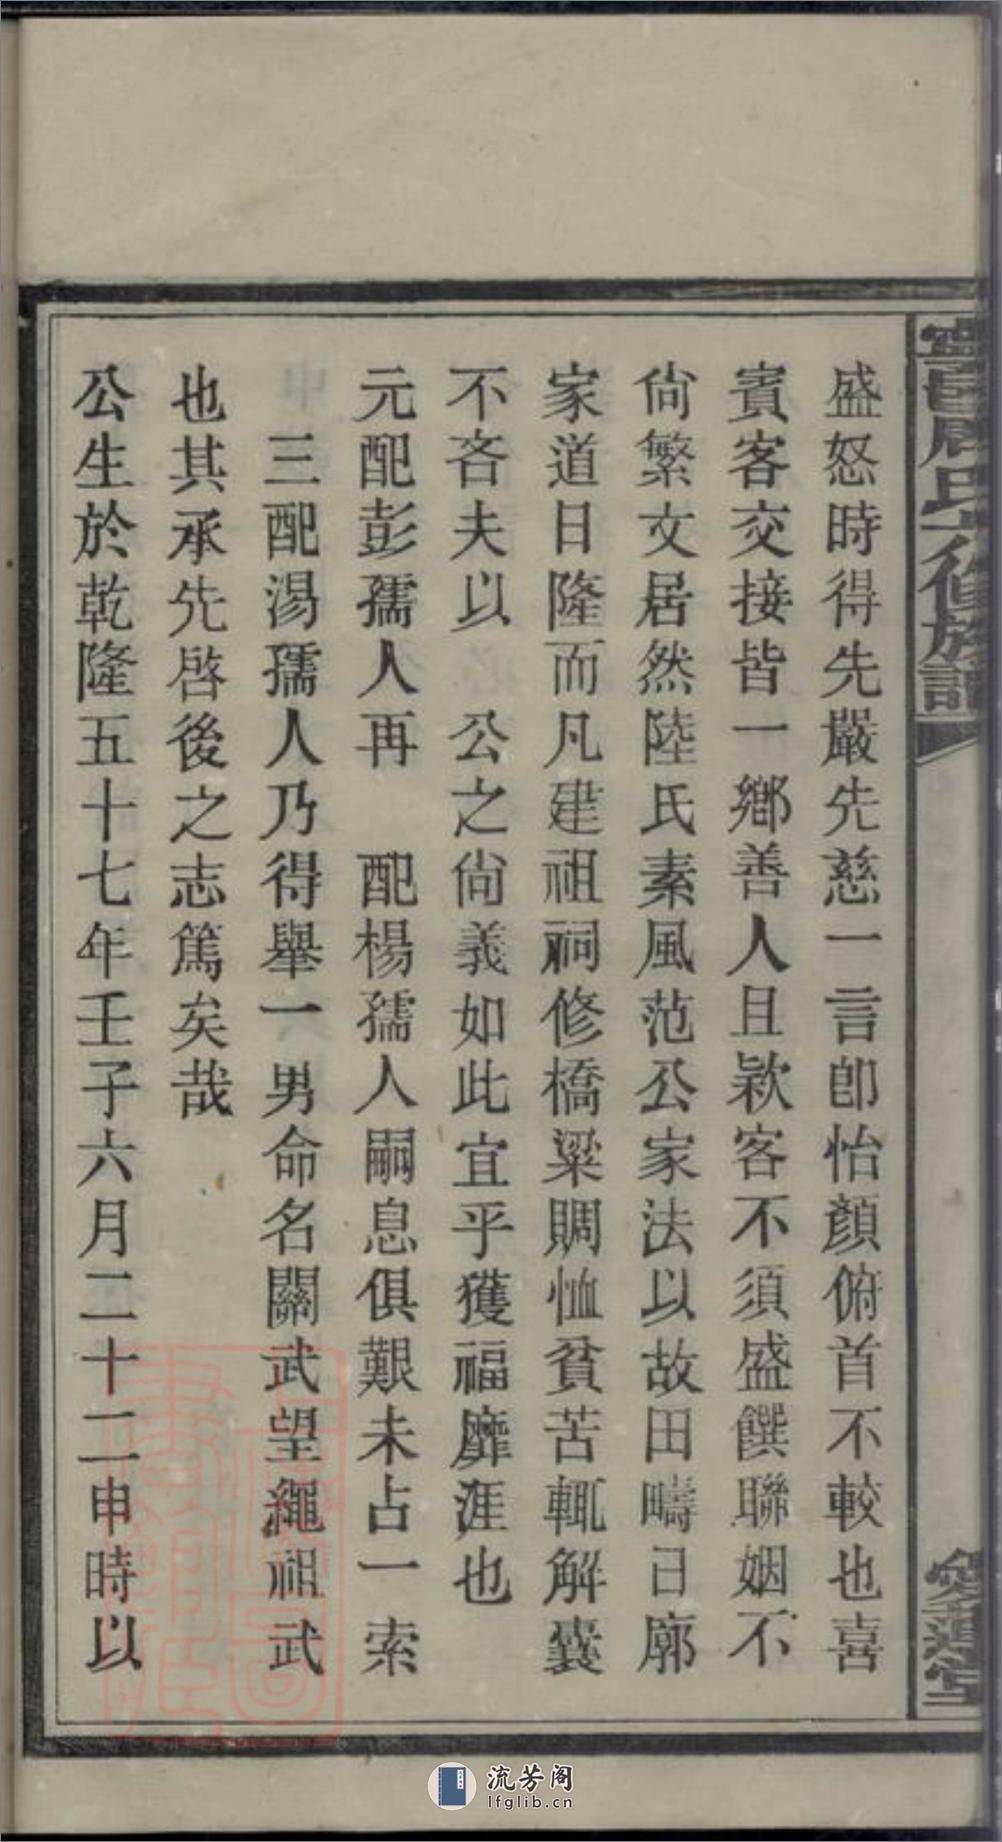 盛怒時得先嚴先慈一言卽怡顏俯首不較也喜
賓客交接皆一鄉善人且欵客不須盛饌聯姻不
尙繁文居然陸氏素風范公家法以故田疇日廓
家道日隆而凡建祖祠修橋梁賙恤貧苦輒解囊
不吝夫以　公之尙義如此宜乎獲福靡涯也
元配彭孺人再　配楊孺人嗣息俱艱未占一索
三配湯孺人乃得舉一男命名關武望繩祖武
也其承先啓後之志篤矣哉
公生於乾隆五十七年壬子六月二十二申時以
流芳阁
lfglib.cn